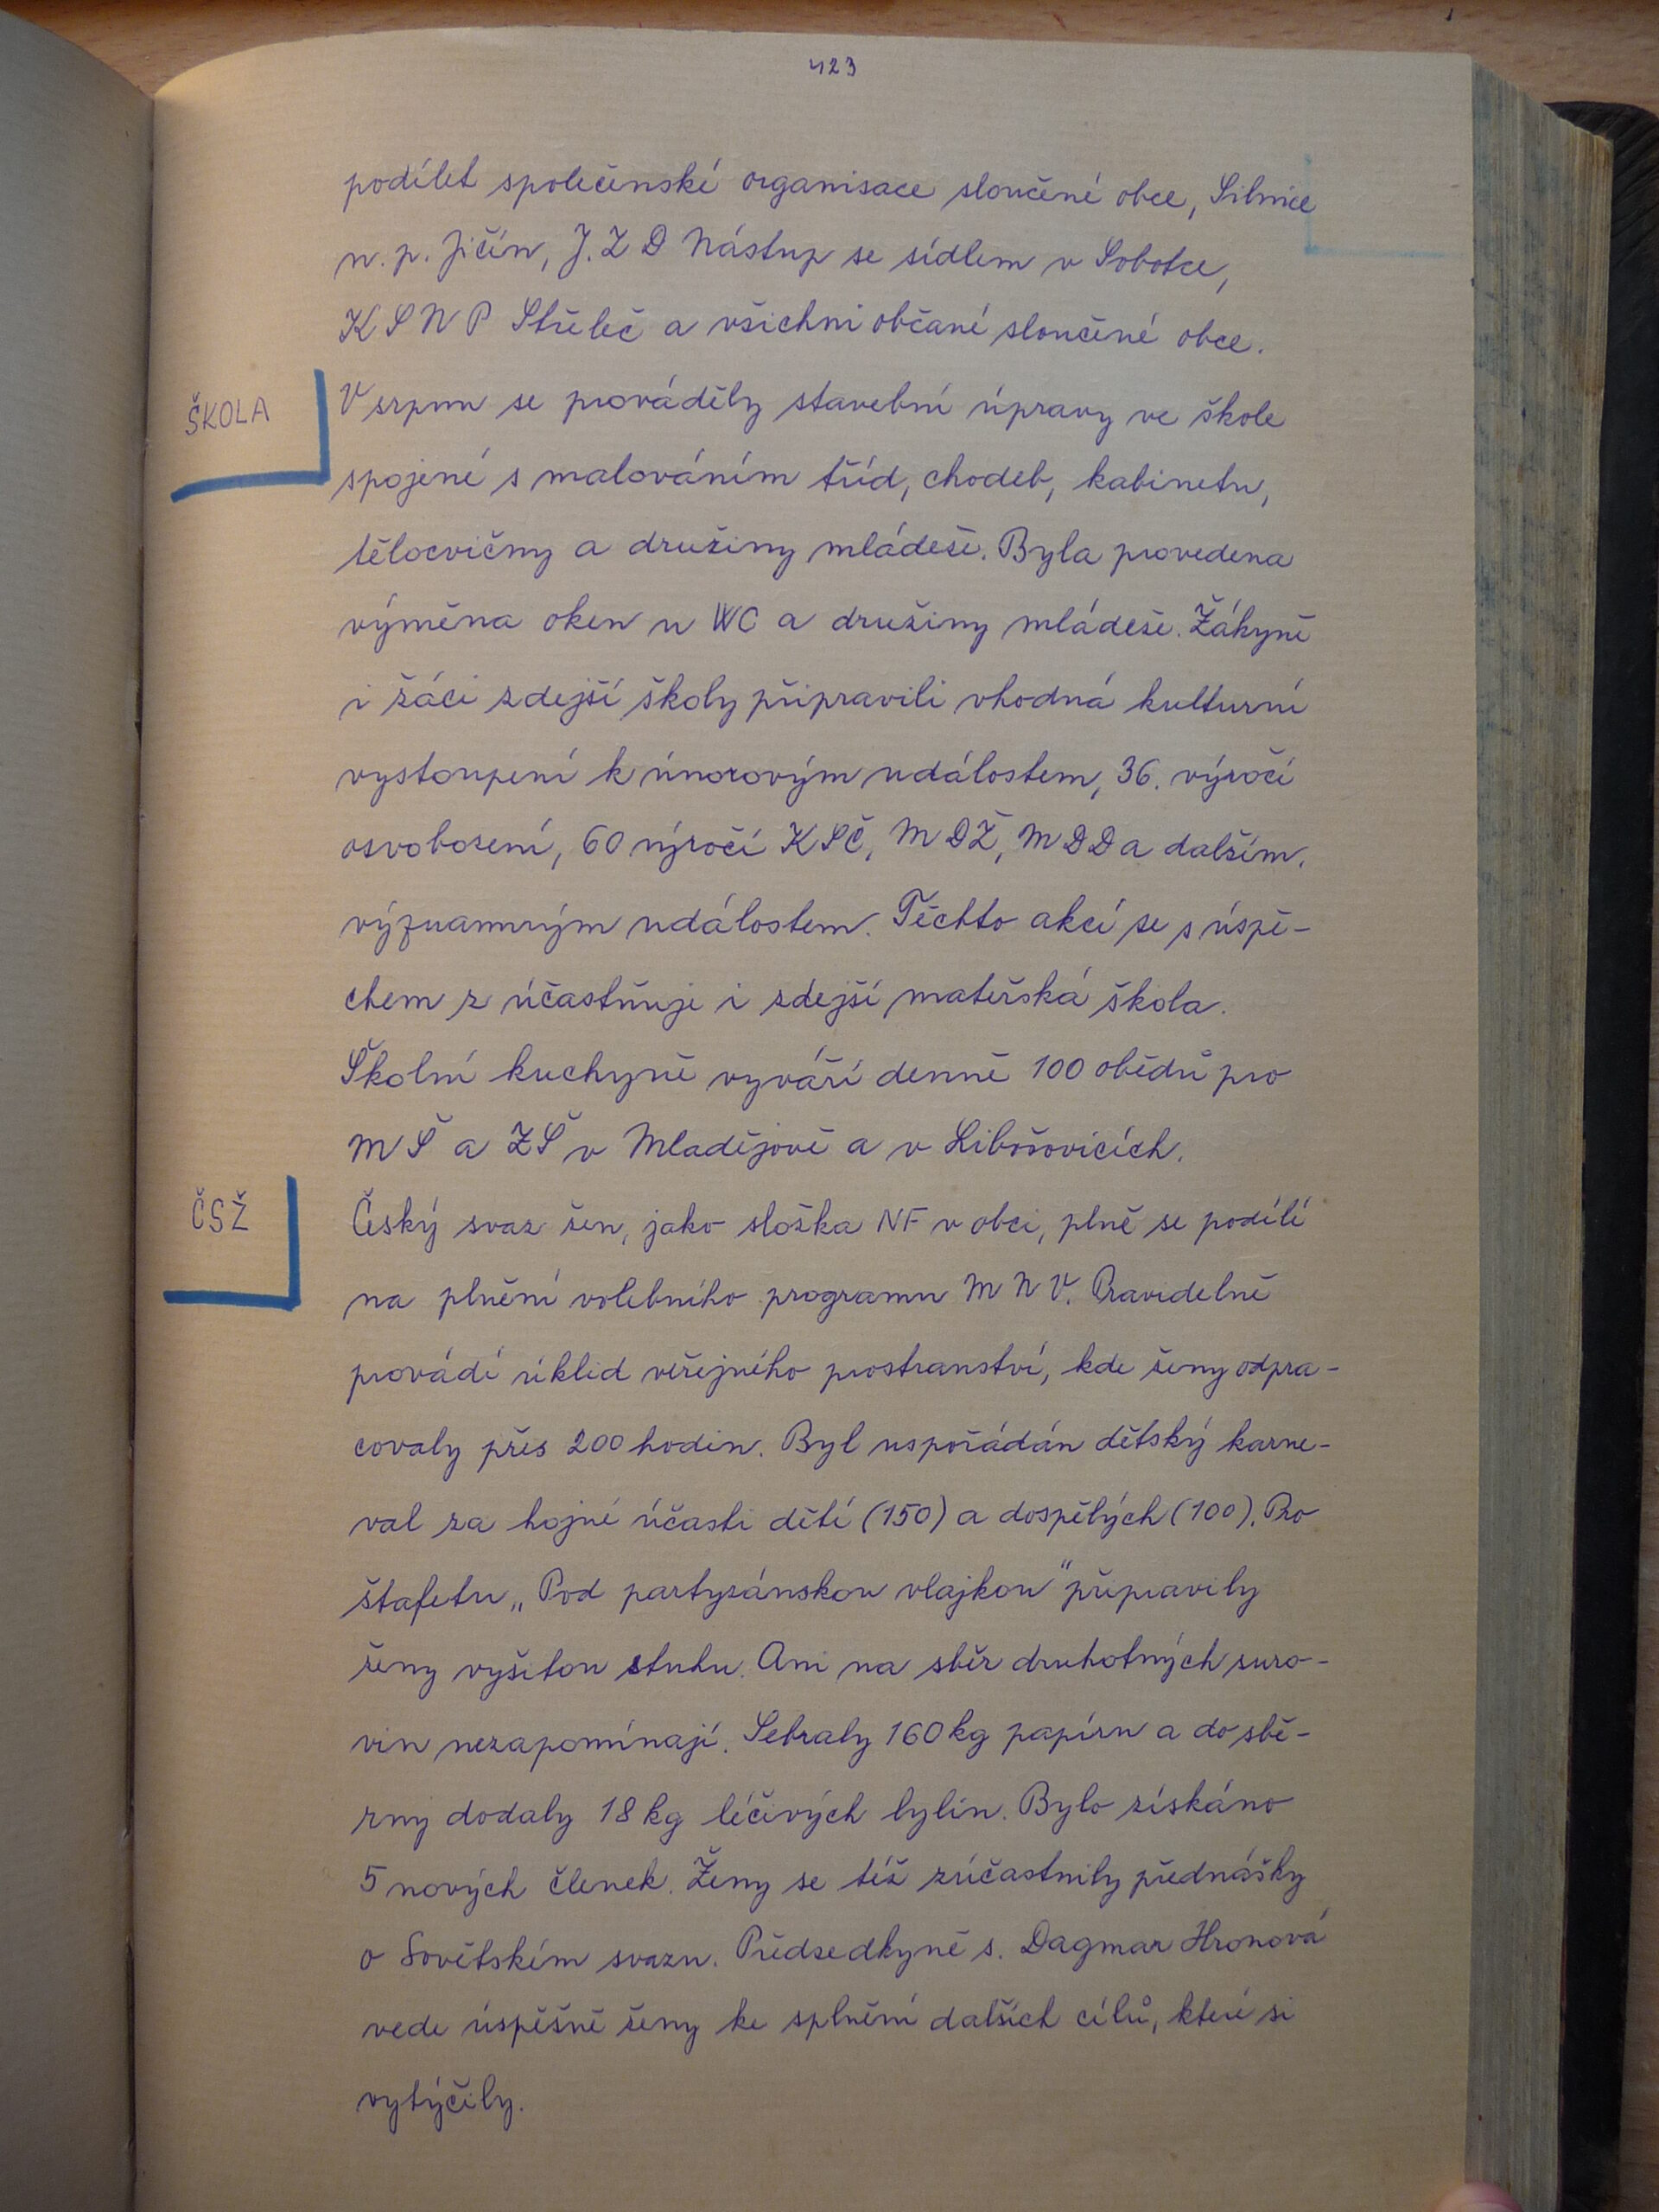 423
podílet společenské organisace sloučené obce, Silnice
n. p. Jičín, J. Z D Nástup se sídlem v Sobotce,
K S N P Střeleč a všichni občané sloučené obce.
ŠKOLA
V srpnu se prováděly stavební úpravy ve škole
spojené s malováním tříd, chodeb, kabinetu,
tělocvičny a družiny mládeže. Byla provedena
výměna oken u WC a družiny mládeže. Žákyně
i žáci zdejší školy připravili vhodná kulturní
vystoupení k únorovým událostem, 36. výročí
osvobození, 60 výročí KSČ, MDŽ, MDD a dalším.
významným událostem. Těchto akcí se s úspě-
chem z účastňuje i zdejší mateřská škola.
Školní kuchyně vyváří denně 100 obědů pro
MŠ a ZŠ v Mladějově a v Libošovicích.
ČSŽ
Český svaz žen, jako složka NF v obci, plně se podílí
na plnění volebního programu M N V. Pravidelně
provádí úklid veřejného prostranství, kde ženy odpra-
covaly přes 200 hodin. Byl uspořádán dětský karne-
val za hojné účasti dětí (150) a dospělých (100). Pro
štafetu „Pod partyzánskou vlajkou" připravily
ženy vyšitou stuhu. Ani na sběr druhotných suro-
vin nezapomínají. Sebraly 160 kg papíru a do sbě-
rny dodaly 18 kg léčivých bylin. Bylo získáno
5 nových členek. Ženy se též zúčastnily přednášky
o Sovětském svazu. Předsedkyně s. Dagmar Hronová
vede úspěšně ženy ke splnění dalších cílů, které si
vytýčily.